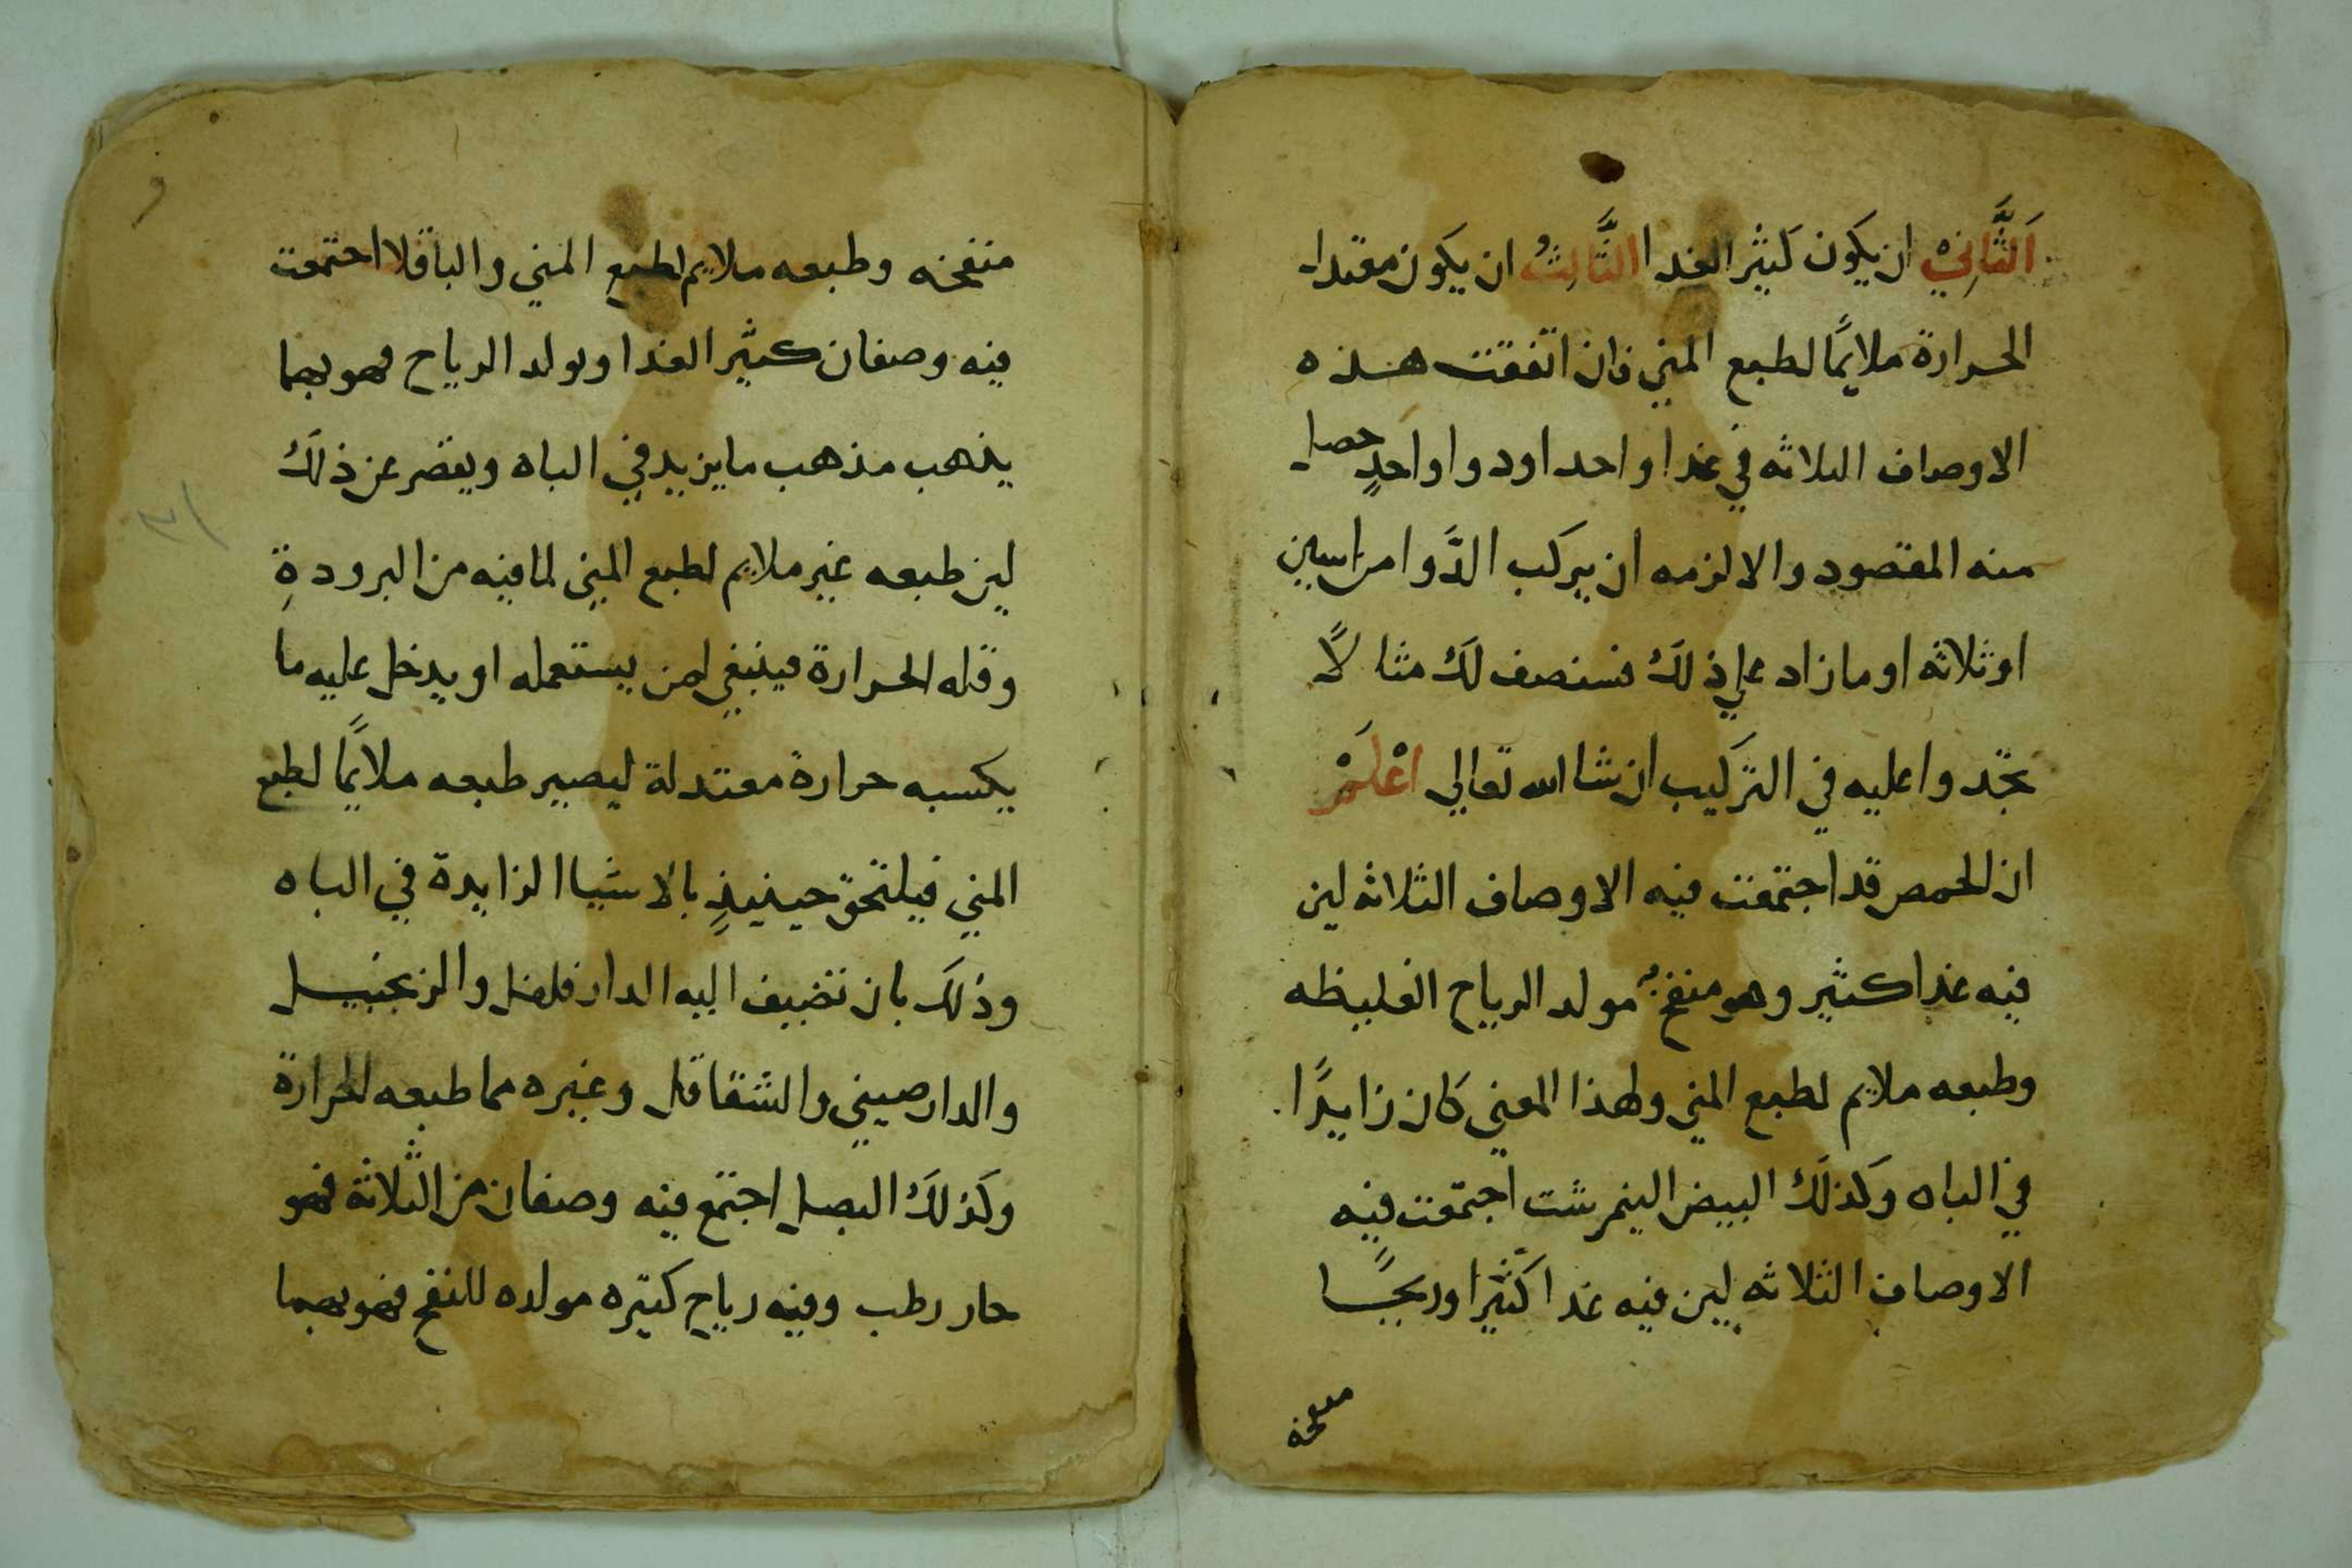 اَلثَّانِيْ ان يكون كثير الغدا الثَّالِثُ ان يكون مقتدا
الحرارة ملايمًا لطبع المني فان اتفقت هذه
الاوصاف الثلاثه في غدا واحد او دوا واحدٍ حصل
منه المقصود والا لزمه ان يركب الدَّوا من اسين
او ثلاثه او ما زاد علي ذلك فسنصف لك مثالاً
تجد واعليه في التركيب ان شا الله تعالي اعْلَمْ
ان الحمص قد اجتمعت فيه الاوصاف الثلاثه لين
فيه غدا كثير وهو منفخ مولد الرياح الغليظه
وطبعه ملايم لطبع المني ولهذا المعني كان زايدًا
في الباه وكذلك البيض الينمرشت اجتمعت فيه
الاوصاف الثلاثه لين فيه غدا كثيرا وريحًا
منفخه
منفخه وطبعه ملايم لطبع المني والباقلا اجتمعت
فيه وصفان كثير الغدا ويولد الرياح فهو بهما
يذهب مذهب ما يزيد في الباه ويقصر عن ذلك
لين طبعه غير ملايم لطبع المني لما فيه من البرودةِ
وقله الحرارة فينبغي لمن يستعمله او يدخل عليه ما
يكسبه حرارة معتدلة ليصير طبعه ملايمًا لطبع
المني فيلتحق حينيذٍ بالاشيا الزايدة في الباه
وذلك بان تضيف اليه الدار فلفل والزنجبيل
والدارصيني والشقاقل وغيره مما طبعه الحرارة
وكذلك البصل اجتمع فيه وصفان من الثلاثة فهو
حار رطب وفيه رياح كثيره مولده للنفخ فهو بهما